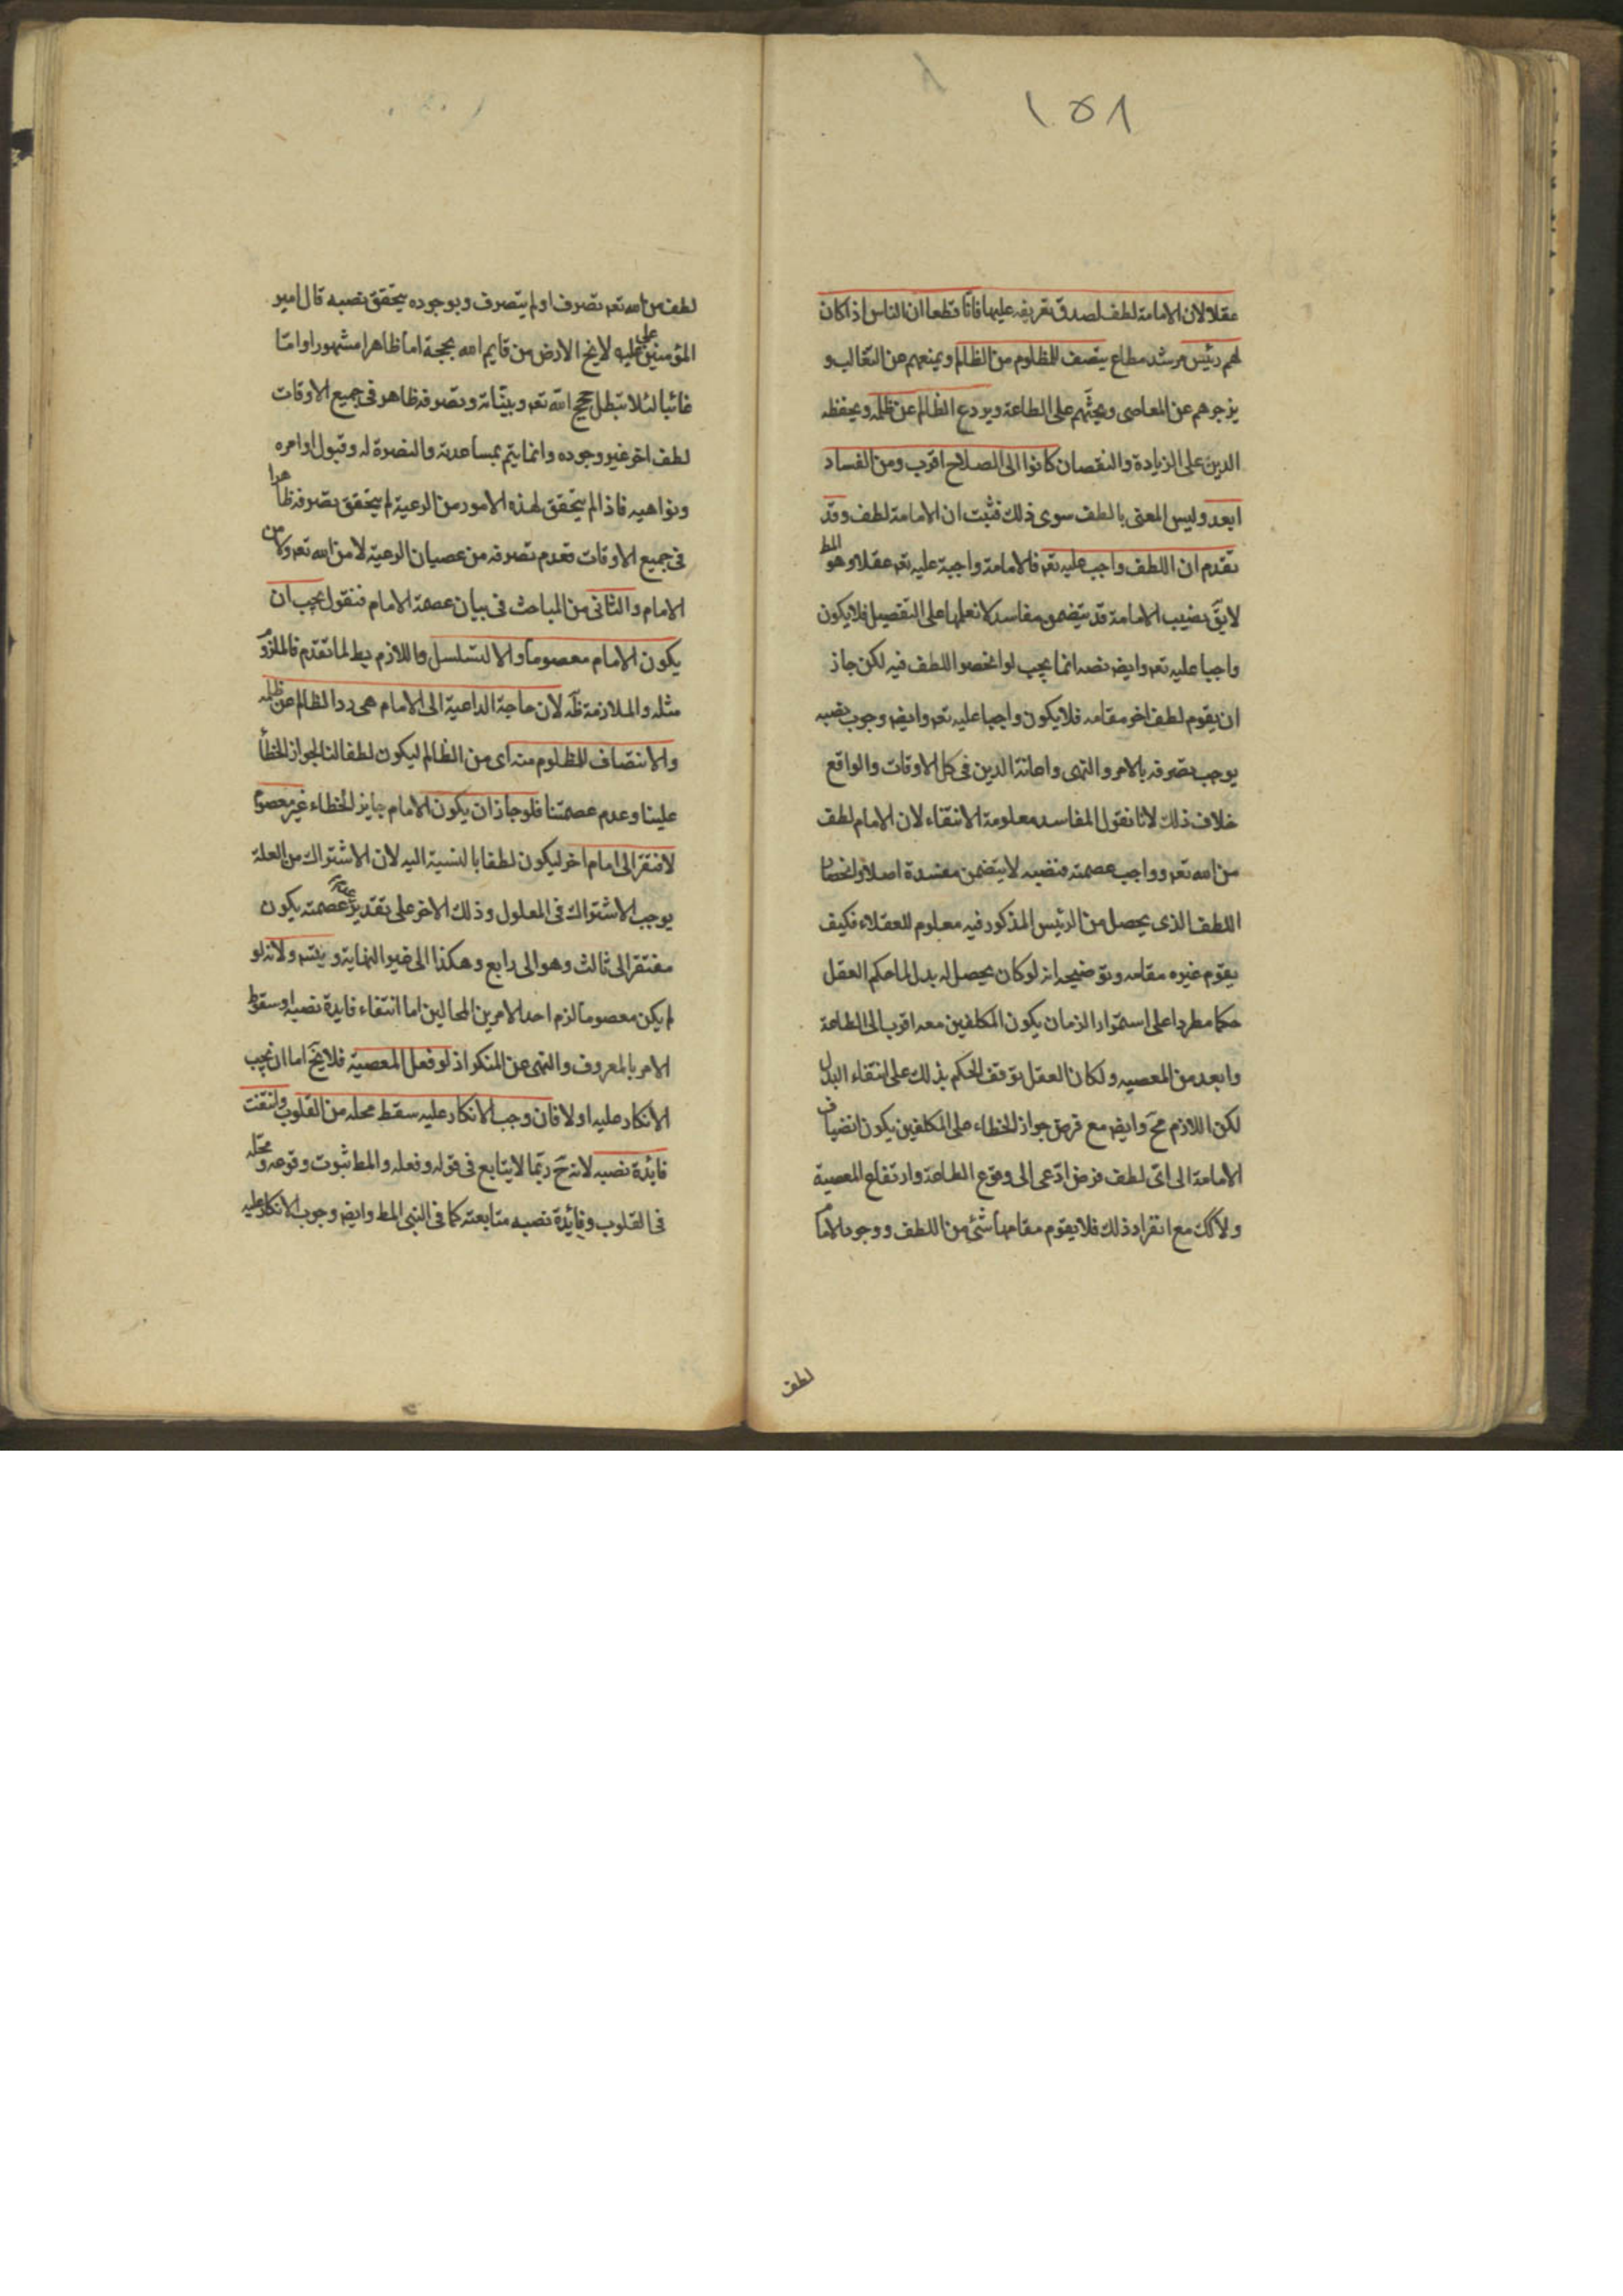 ١٥٨
عقلا لان الامامة لطف لصدق تعريفه عليها فانا قطعا ان الناس اذا كان
لهم رئيس مرشد مطاع ينتصف للمظلوم من الظالم و يمنعهم عن التغالب و
يزجرهم عن المعاصى و يحثهم على الطاعة و يردع الظالم عن ظلمه و يحفظه
الدين على الزيادة والنقصان كانوا الى الصلاح اقرب ومن الفساد
ابعد وليس المعنى باللطف سوى ذلك فثبت ان الامامة لطف وقد
تقدم ان اللطف واجب عليه تعه فالامامة واجبة عليه تعه عقلا وهو المط
لا يق نصب الامامة قد يتضمن مفاسد لا نعلمها على التفصيل فلا يكون
واجبا عليه تعه وايض نصبه انما يجب لو انحصر اللطف فيه لكن جاز
ان يقوم لطف اخر مقامه فلا يكون واجبا عليه تعه وايض وجوب نصبه
يوجب تصرفه بالامر و النهى واعانة الدين فى كل الاوقات والواقع
خلاف ذلك لانا نقول المفاسد معلومة الانتفاء لان الامام لطف
من الله تعه وواجب عصمته فنصبه لا يتضمن مفسدة اصلا وانحصار
اللطف الذى يحصل من الرئيس المذكور فيه معلوم للعقلاء فكيف
يقوم غيره مقامه وتوضيحه انه لو كان يحصل له بدل لما حكم العقل
حكما مطردا على استمرار الزمان يكون المكلفين معه اقرب الى الطاعة
وابعد من المعصيه ولكان العقل توقف الحكم بذلك على انتفاء البدل
لكن اللازم مح وايض مع فرض جواز الخطاء على المكلفين يكون انضياف
الامامة الى اى لطف فرض ادعى الى وقوع الطاعة وارتفاع المعصية
ولا كك مع انفراد ذلك فلا يقوم مقامها شئ من اللطف ووجود الامام
لطف
لطف من الله تعه تصرف او لم يتصرف و بوجوده يتحقق نصبه قال امير
المؤمنين على عليه لا يخ الارض من قايم لله بحجة اما ظاهرا مشهورا واما
غائبا لئلا تبطل حجج الله تعه و بيناته و تصرفه ظاهر فى جميع الاوقات
لطف اخر غير وجوده وانما يتم بمساعدته والنصرة له وقبول اوامره
ونواهيه فاذا لم يتحقق لهذه الامور من الرعية لم يتحقق تصرفه ظاهرا
فى جميع الاوقات فعدم تصرفه من عصيان الرعية لا من الله تعه ولا من
الامام والثانى من المباحث فى بيان عصمة الامام فنقول يجب ان
يكون الامام معصوما والا لتسلسل واللازم بط لما تقدم فالملزوم
مثله والملازمة ظه لان حاجة الداعية الى الامام هى رد الظالم عن ظلمه
والانتصاف للمظلوم منه اى من الظالم ليكون لطفا لنا لجواز الخطأ
علينا وعدم عصمتنا فلو جاز ان يكون الامام جايز الخطاء غير معصوم
لافتقر الى امام اخر ليكون لطفا بالنسبة اليه لان الاشتراك من العلة
يوجب الاشتراك فى المعلول وذلك الاخر على تقدير عدم عصمته يكون
مفتقرا الى ثالث وهو الى رابع وهكذا الى غير النهاية و يتسه ولانه لو
لم يكن معصوما لزم احد الامرين المحالين اما انتفاء فايدة نصبه او سقوط
الامر بالمعروف والنهى عن المنكر اذ لو فعل المعصية فلا يخ اما ان يجب
الانكار عليه اولا فان وجب الانكار عليه سقط محله من القلوب وانتفت
فائدة نصبه لانه ح ربما لا يتابع فى قوله وفعله والمط ثبوت وقوعه و محله
فى القلوب وفائدة نصبه متابعته كما فى النبى المط وايض وجوب الانكار عليه